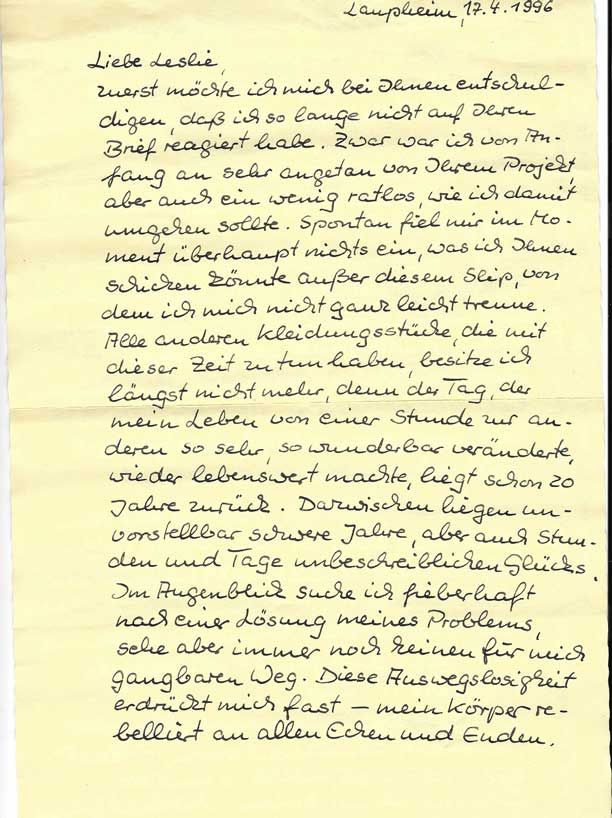 Laupheim, 17.4.1996
Liebe Leslie,
zuerst möchte ich mich bei Ihnen entschul-
digen, daß ich so lange nicht auf Ihren
Brief reagiert habe. Zwar war ich von An-
fang an sehr angetan von Ihrem Projekt,
aber auch ein wenig ratlos, wie ich damit
umgehen sollte. Spontan fiel mir im Mo-
ment überhaupt nichts ein, was ich Ihnen
schicken könnte außer diesem Slip, von
dem ich mich nicht ganz leicht trenne.
Alle anderen Kleidungsstücke, die mit
dieser Zeit zu tun haben, besitze ich
längst nicht mehr, denn der Tag, der
mein Leben von einer Stunde zur an-
deren so sehr, so wunderbar veränderte,
wieder lebenswert machte, liegt schon 20
Jahre zurück. Dazwischen liegen un-
vorstellbar schwere Jahre, aber auch Stun-
den und Tage unbeschreiblichen Glücks.
Im Augenblick suche ich fieberhaft
nach einer Lösung meines Problems,
sehe aber immer noch keinen für mich
gangbaren Weg. Diese Ausweglosigkeit
erdrückt mich fast – mein Körper re-
belliert an allen Ecken und Enden.